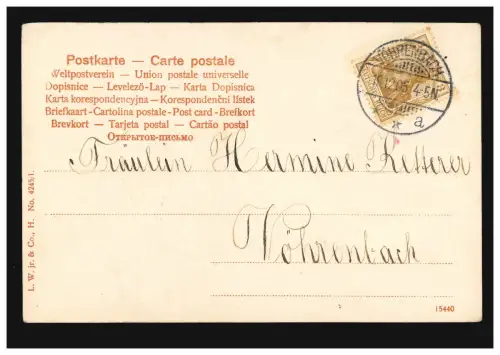 Postkarte — Carte postale
Weltpostverein — Union postale universelle
Dopisnice — Levelező-Lap — Karta Dopisnica
Karta korespondencyjna — Korespondenční lístek
Briefkaart - Cartolina postale - Post card - Brefkort
Brevkort — Tarjeta postal — Cartão postal
Открытое письмо
Fräulein Hermine Ketterer
Vöhrenbach
L. W. jr. & Co., H. No. 4245/1.
15440
VÖHRENBACH
4-5N
* a